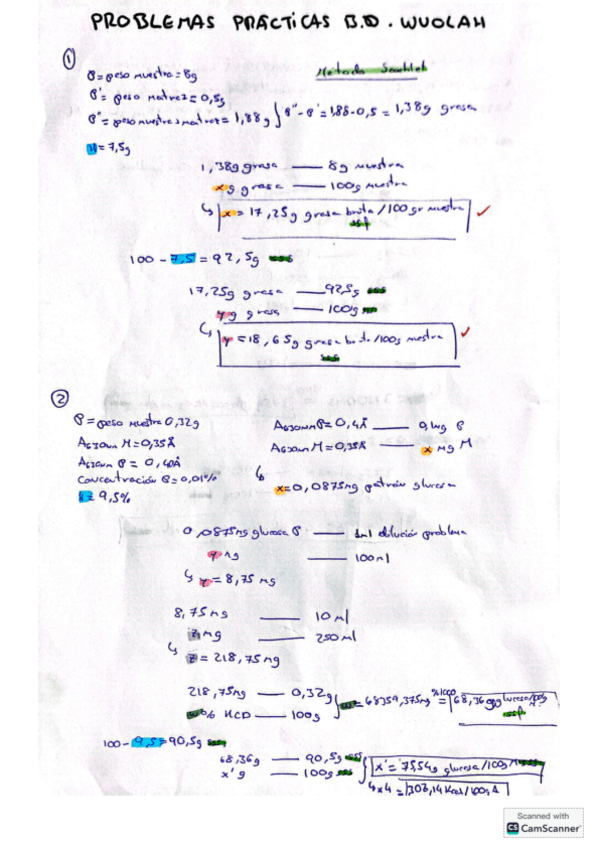 PROBLEMAS PRÁCTICAS B.D. WUOLAH
①
Método Soxhlet
P = peso muestra = 8g
P' = peso matraz = 0,5g
P'' = peso muestra + matraz = 1,88g } P'' - P' = 1,88 - 0,5 = 1,38g grasa
H = 7,5g
1,38g grasa — 8g muestra
x g grasa — 100g muestra
↳ x = 17,25g grasa bruta/100 gr muestra ✓
ssf
100 - 7,5 = 92,5g sss
17,25g grasa — 92,5g sss
y g grasa — 100g
↳ y = 18,65g grasa bruta/100g muestra ✓
sss
②
P = peso muestra 0,32g
A630nm M = 0,35Å
A630nm P = 0,40Å
Concentración P = 0,01%
H = 9,5%
A630nm P = 0,4Å — 0,1mg P
A630nm M = 0,35Å — x mg M
↳ x = 0,0875mg patrón glucosa
0,0875mg glucosa P — 1ml dilución problema
y mg — 100ml
↳ y = 8,75 mg
8,75 mg — 10 ml
z mg — 250 ml
↳ z = 218,75 mg
218,75mg — 0,32g
% HCD — 100g
= 68359,375mg %1000 = 68,36g glucosa/100g
ssf
100 - 9,5 = 90,5g sss
68,36g — 90,5g sss
x' g — 100g sss
x' = 75,54g glucosa/100g
↳ x4 = 302,14 Kcal/100g A
Scanned with
CS CamScanner